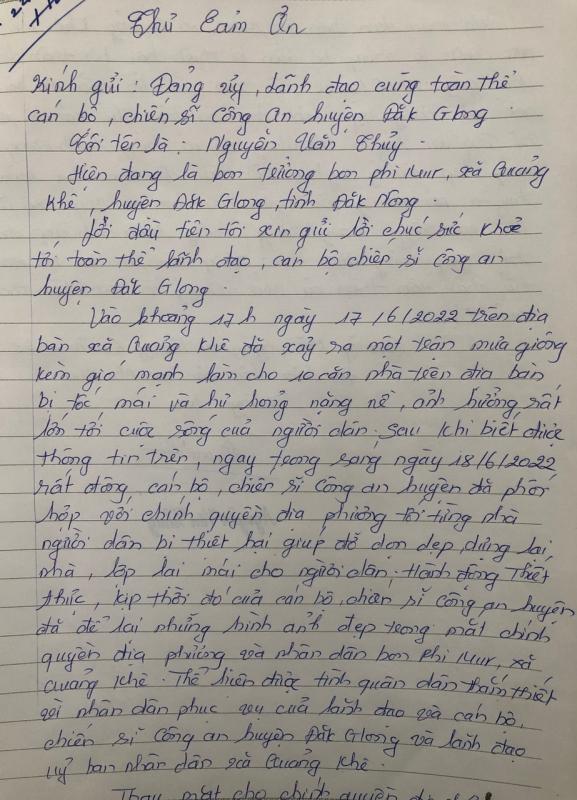 Thư Cảm Ơn
Kính gửi: Đảng ủy, lãnh đạo cùng toàn thể
cán bộ, chiến sĩ công an huyện Đắk Glong
Tôi tên là: Nguyễn Văn Thủy.
Hiện đang là bon trưởng bon phi Mur, xã Quảng
Khê, huyện Đắk Glong, tỉnh Đắk Nông.
Lời đầu tiên tôi xin gửi lời chúc sức khoẻ
tới toàn thể lãnh đạo, cán bộ chiến sĩ công an
huyện Đắk Glong.
Vào khoảng 17h ngày 17/6/2022 trên địa
bàn xã Quảng Khê đã xảy ra một trận mưa giông
kèm gió mạnh làm cho 10 căn nhà trên địa bàn
bị tốc mái và hư hỏng nặng nề, ảnh hưởng rất
lớn tới cuộc sống của người dân. Sau khi biết được
thông tin trên, ngay trong sáng ngày 18/6/2022
rất đông cán bộ, chiến sĩ công an huyện đã phối
hợp với chính quyền địa phương tới từng nhà
người dân bị thiệt hại giúp đỡ dọn dẹp, dựng lại
nhà, lợp lại mái cho người dân. Hành động Thiết
thực, kịp thời đó của cán bộ, chiến sĩ công an huyện
đã để lại những hình ảnh đẹp trong mắt chính
quyền địa phương và nhân dân bon phi Mur, xã
Quảng Khê. Thể hiện được tình quân dân thắm thiết
vì nhân dân phục vụ của lãnh đạo và cán bộ,
chiến sĩ công an huyện Đắk Glong và lãnh đạo
uỷ ban nhân dân xã Quảng Khê.
Thay mặt cho chính quyền